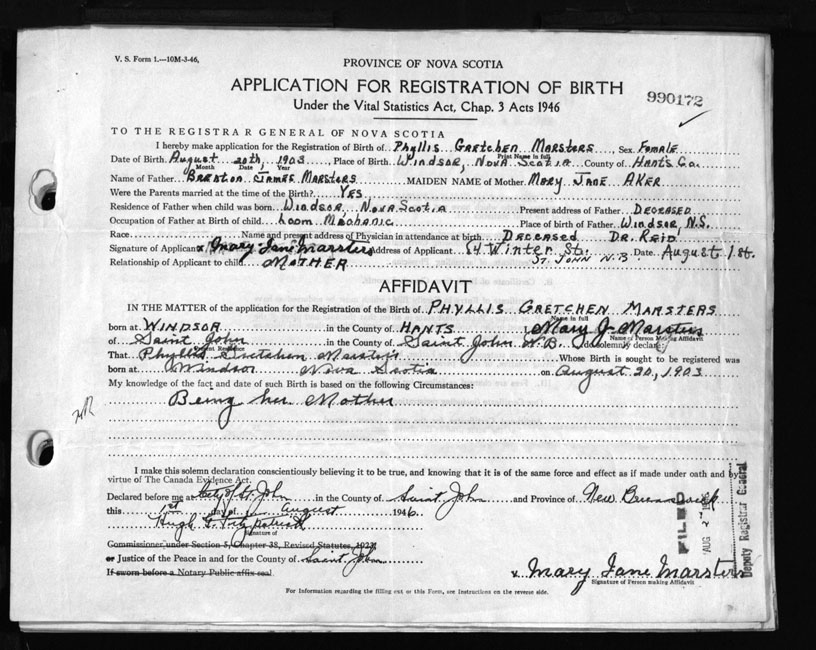 V. S. Form 1.—10M-3-46,
PROVINCE OF NOVA SCOTIA
APPLICATION FOR REGISTRATION OF BIRTH
990172
Under the Vital Statistics Act, Chap. 3 Acts 1946
TO THE REGISTRAR GENERAL OF NOVA SCOTIA
I hereby make application for the Registration of Birth of Phyllis Gretchen Marsters, Sex Female
Print Name in full
Date of Birth August 20th, 1903, Place of Birth Windsor, Nova Scotia County of Hants Co.
Month Day Year
Name of Father Brenton James Marsters MAIDEN NAME of Mother Mary Jane Aker
Were the Parents married at the time of the Birth? Yes
Residence of Father when child was born Windsor Nova Scotia Present address of Father Deceased
Occupation of Father at Birth of child Loom Mechanic Place of birth of Father Windsor, N.S.
Race Name and present address of Physician in attendance at birth Deceased Dr. Reid
Signature of Applicant Mary Jane Marsters Address of Applicant 84 Winter St. Date August 1st.
St. John N.B.
Relationship of Applicant to child Mother
AFFIDAVIT
IN THE MATTER of the application for the Registration of the Birth of Phyllis Gretchen Marsters
Name in full
born at Windsor in the County of Hants Mary J. Marsters
Name of Person Making Affidavit
of Saint John in the County of Saint John N.B. do solemnly declare:
Present Residence
That Phyllis Gretchen Marsters Whose Birth is sought to be registered was
born at Windsor Nova Scotia on August 20, 1903
My knowledge of the fact and date of such Birth is based on the following Circumstances:
Being her Mother
I make this solemn declaration conscientiously believing it to be true, and knowing that it is of the same force and effect as if made under oath and by
virtue of The Canada Evidence Act.
Declared before me at City of St. John in the County of Saint John and Province of New Brunswick
this 1st day of August 1946
Hugh G. Fitzpatrick
Signature of
Commissioner under Section 5, Chapter 38, Revised Statutes, 1923
or Justice of the Peace in and for the County of Saint John
If sworn before a Notary Public affix seal
v Mary Jane Marsters
Signature of Person making Affidavit
FILED
AUG 2
Deputy Registrar General
For Information regarding the filling out or this Form, are Instructions on the reverse side.